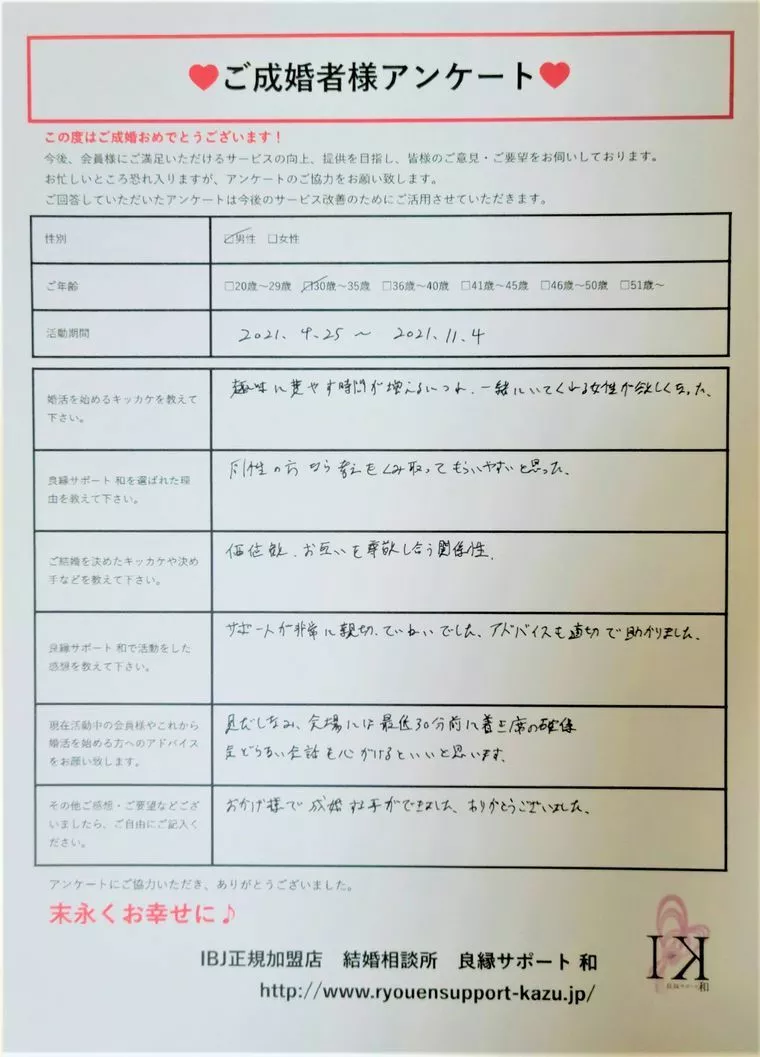 ♥ご成婚者様アンケート♥
この度はご成婚おめでとうございます！
今後、会員様にご満足いただけるサービスの向上、提供を目指し、皆様のご意見・ご要望をお伺いしております。
お忙しいところ恐れ入りますが、アンケートのご協力をお願い致します。
ご回答していただいたアンケートは今後のサービス改善のためにご活用させていただきます。
性別
☑男性 □女性
ご年齢
□20歳～29歳 ☑30歳～35歳 □36歳～40歳 □41歳～45歳 □46歳～50歳 □51歳～
活動期間
2021. 9. 25 ～ 2021. 11. 4
婚活を始めるキッカケを教えて
下さい。
趣味に費やす時間が増えるにつれ、一緒にいてくれる女性が欲しくなった。
良縁サポート 和を選ばれた理
由を教えて下さい。
同性の方なら考えをくみ取ってもらいやすいと思った。
ご結婚を決めたキッカケや決め
手などを教えて下さい。
価値観、お互いを尊敬し合う関係性。
良縁サポート 和で活動をした
感想を教えて下さい。
サポートが非常に親切、ていねいでした、アドバイスも適切で助かりました。
現在活動中の会員様やこれから
婚活を始める方へのアドバイス
をお願い致します。
身だしなみ、会場には最低30分前に着き席の確保
会話も心がけるといいと思います。
その他ご感想・ご要望などござ
いましたら、ご自由にご記入く
ださい。
おかげ様で成婚 ができました、ありがとうございました。
アンケートにご協力いただき、ありがとうございました。
末永くお幸せに♪
IBJ正規加盟店 結婚相談所 良縁サポート 和
http://www.ryouensupport-kazu.jp/
KI
良縁サポート和